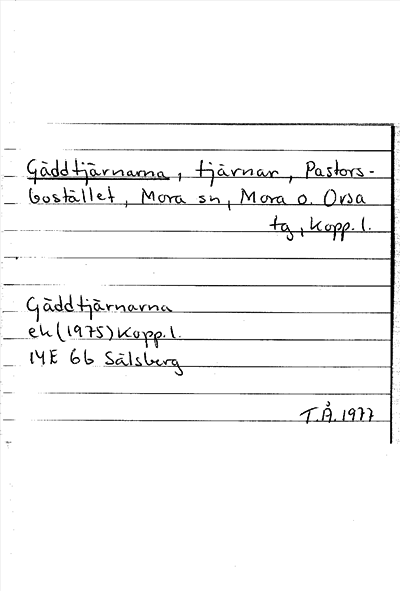 Gäddtjärnarna, tjärnar, Pastors-
bostället, Mora sn, Mora o. Orsa
tg, Kopp. l.
Gäddtjärnarna
ek (1975) Kopp. l.
14E 6b Sälsberg
T.Å. 1977